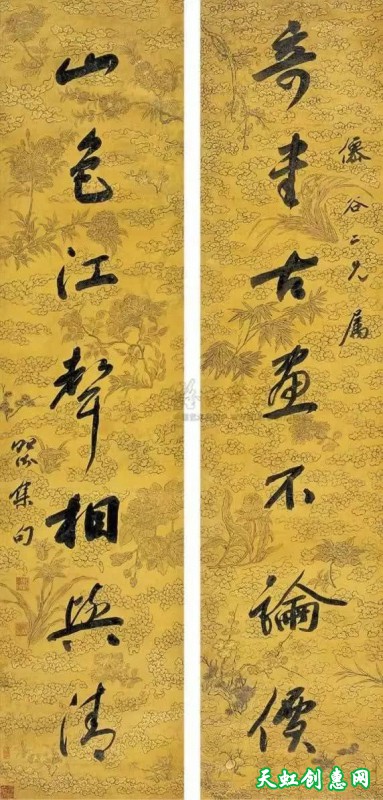 僊谷二兄屬
奇書古畫不論價
山色江聲相與清
集句
天虹创惠网